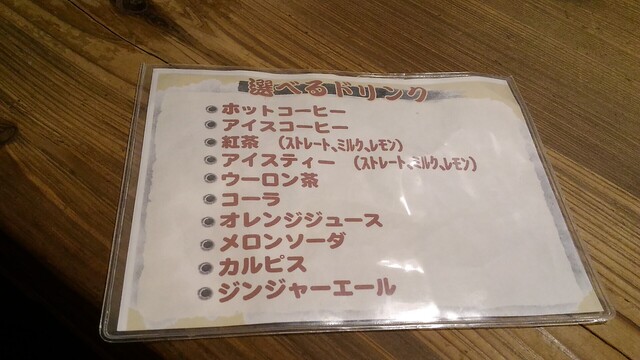 選べるドリンク
ホットコーヒー
アイスコーヒー
紅茶 (ストレート、ミルク、レモン)
アイスティー (ストレート、ミルク、レモン)
ウーロン茶
コーラ
オレンジジュース
メロンソーダ
カルピス
ジンジャーエール